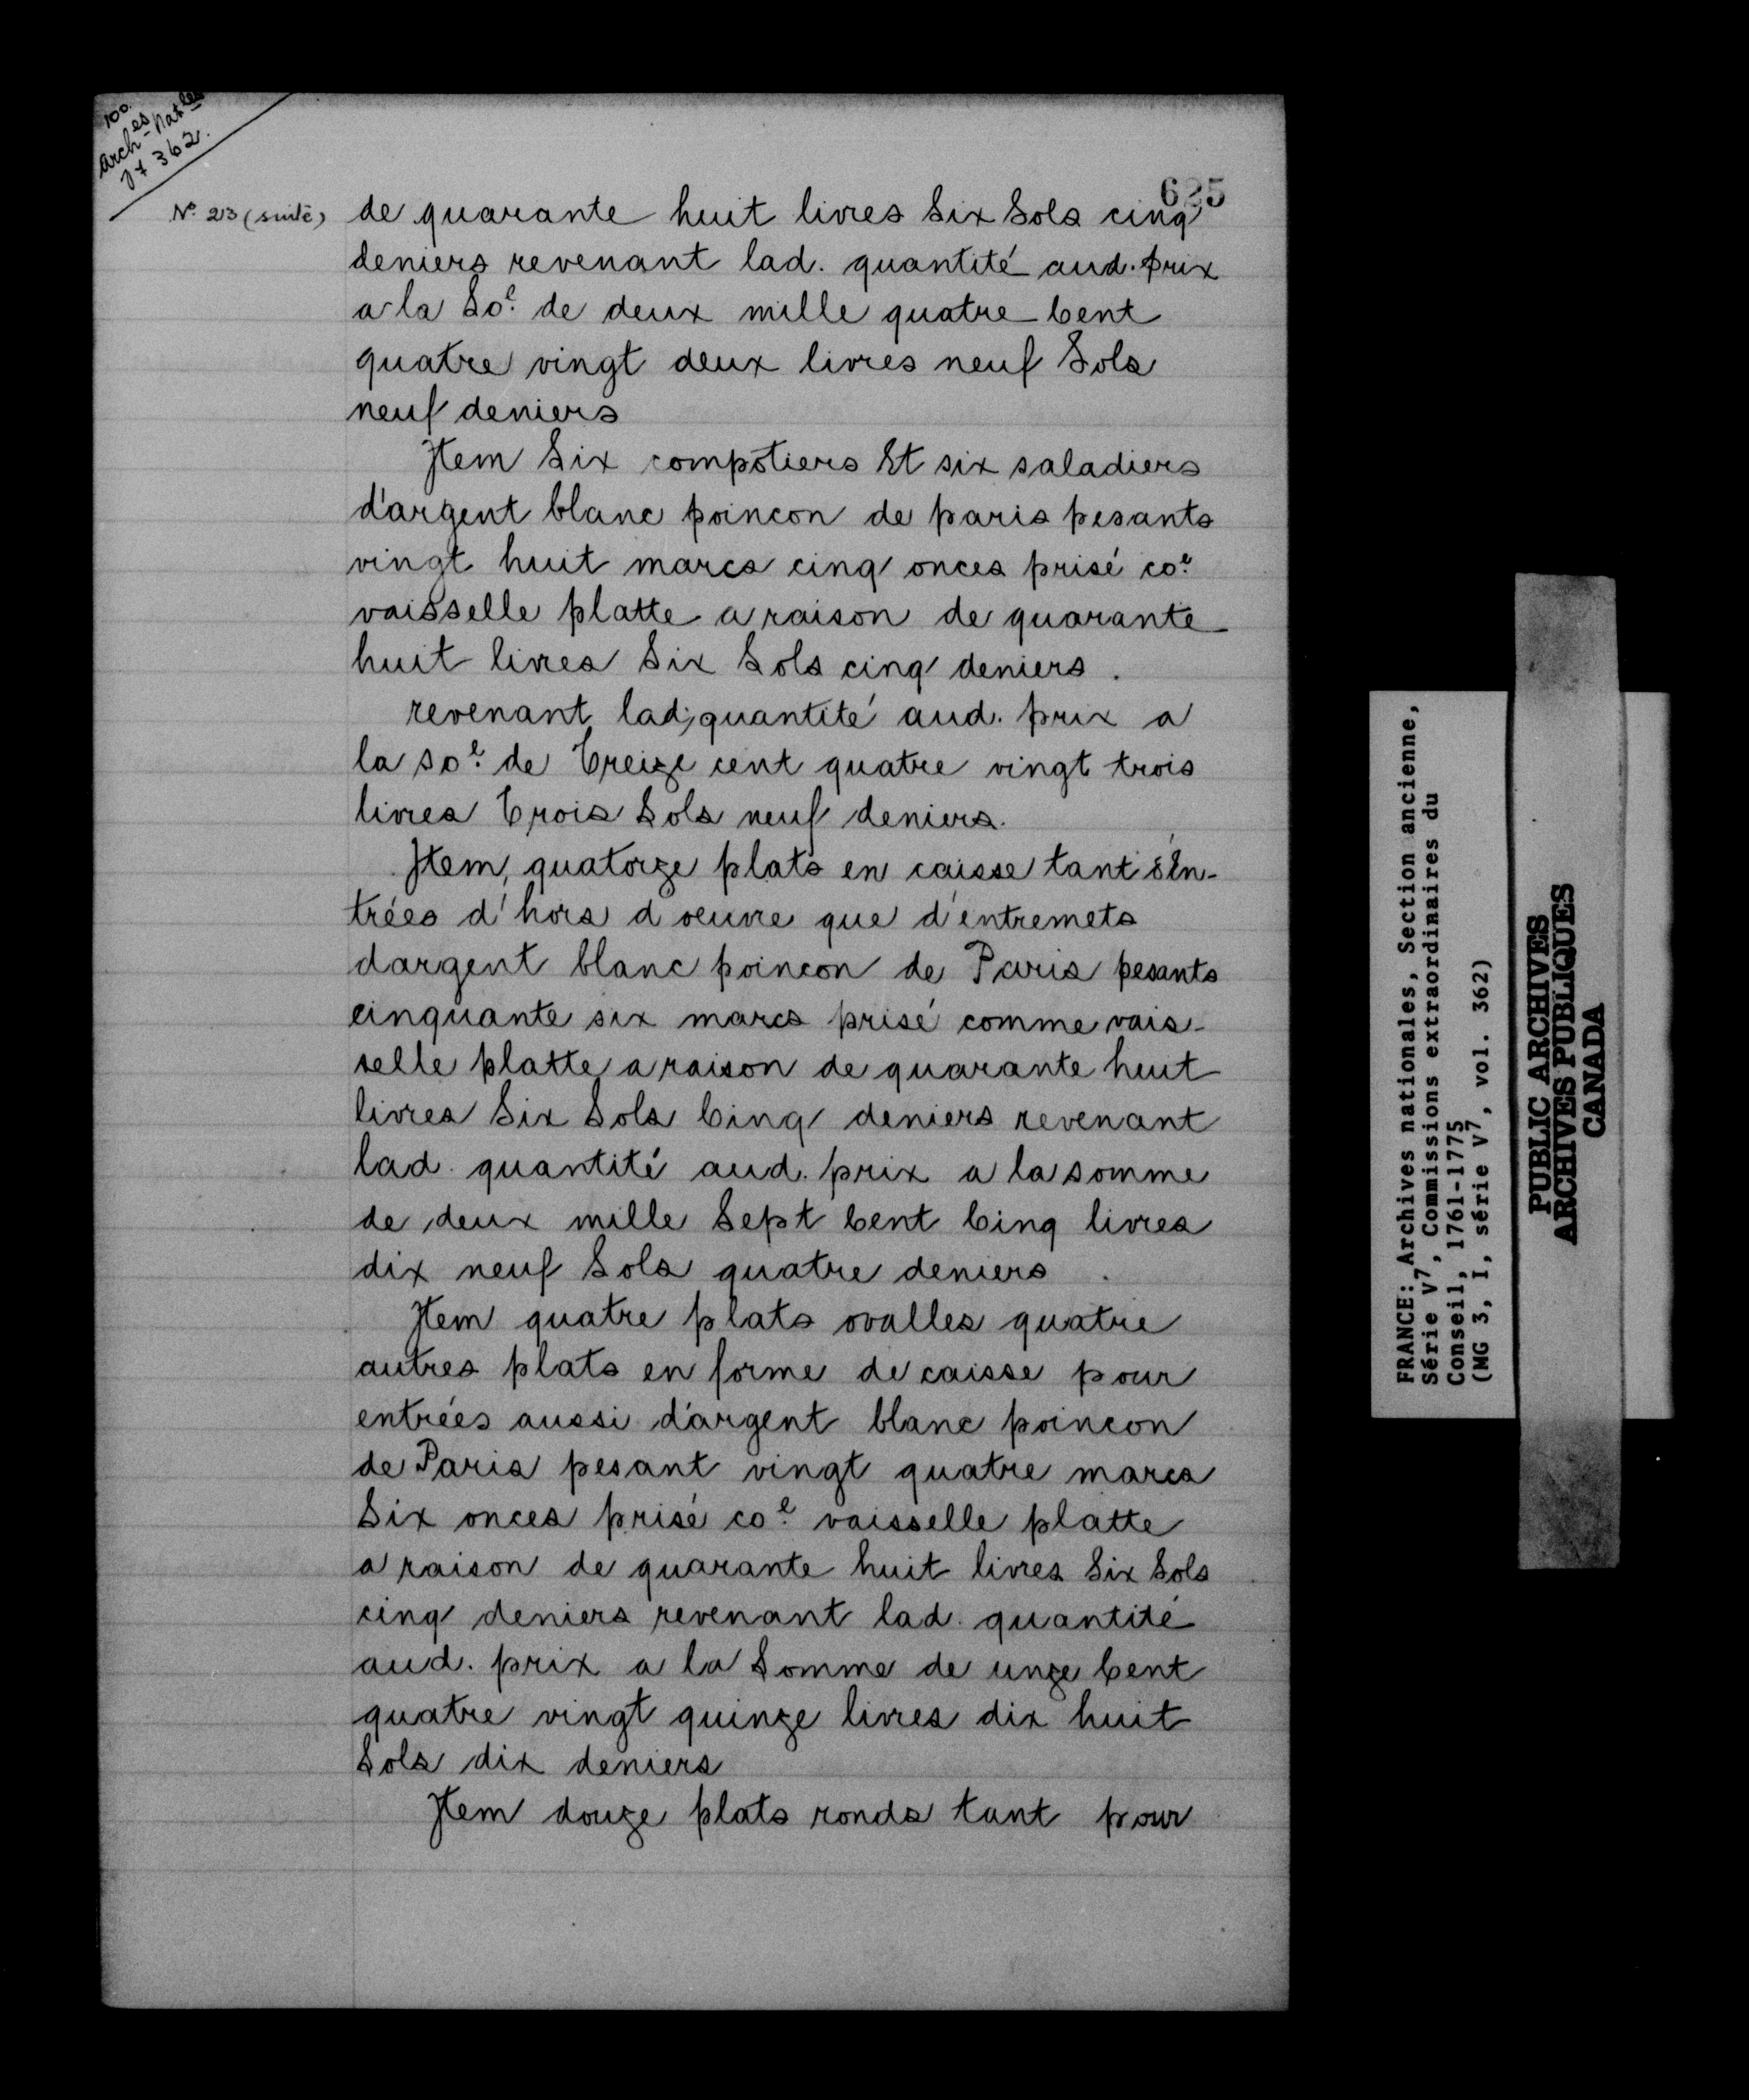 100.
Arch^es Nat^les
V7 362.
625
N° 213 (suite)
de quarante huit livres Six Sols cinq
deniers revenant lad. quantité aud. prix
a la So^e de deux mille quatre Cent
quatre vingt deux livres neuf Sols
neuf deniers
Item Six compotiers Et six saladiers
d'argent blanc poincon de paris pesants
vingt huit marcs cinq onces prisé co^e
vaisselle platte a raison de quarante
huit livres Six Sols cinq deniers.
revenant lad; quantité aud. prix a
la so^e de Treize cent quatre vingt trois
livres Trois Sols neuf deniers.
Item, quatorze plats en caisse tant d'En-
trées d'hors d oeuvre que d'entremets
dargent blanc poincon de Paris pesants
cinquante six marcs prisé comme vais-
selle platte a raison de quarante huit
livres Six Sols Cinq deniers revenant
lad. quantité aud. prix a la somme
de deux mille Sept Cent Cinq livres
dix neuf Sols quatre deniers.
Item quatre plats ovalles quatre
autres plats en forme de caisse pour
entrées aussi d'argent blanc poincon
de Paris pesant vingt quatre marcs
Six onces prisé co^e vaisselle platte
a raison de quarante huit livres Six Sols
cinq deniers revenant lad. quantité
aud. prix a la Somme de unze Cent
quatre vingt quinze livres dix huit
Sols dix deniers
Item douze plats ronds tant pour
FRANCE: Archives nationales, Section ancienne,
Série V7, Commissions extraordinaires du
Conseil, 1761-1775
(MG 3, I, série V7, vol. 362)
PUBLIC ARCHIVES
ARCHIVES PUBLIQUES
CANADA